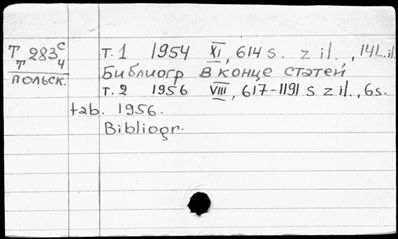 Т 283 с
т 4
польск.
т. 1 1954 XI, 614 s. z il., 14 l. il.
Библиогр в конце статей
т. 2 1956 VIII, 617-1191 s z il., 6 s.
tab. 1956.
Bibliogr.